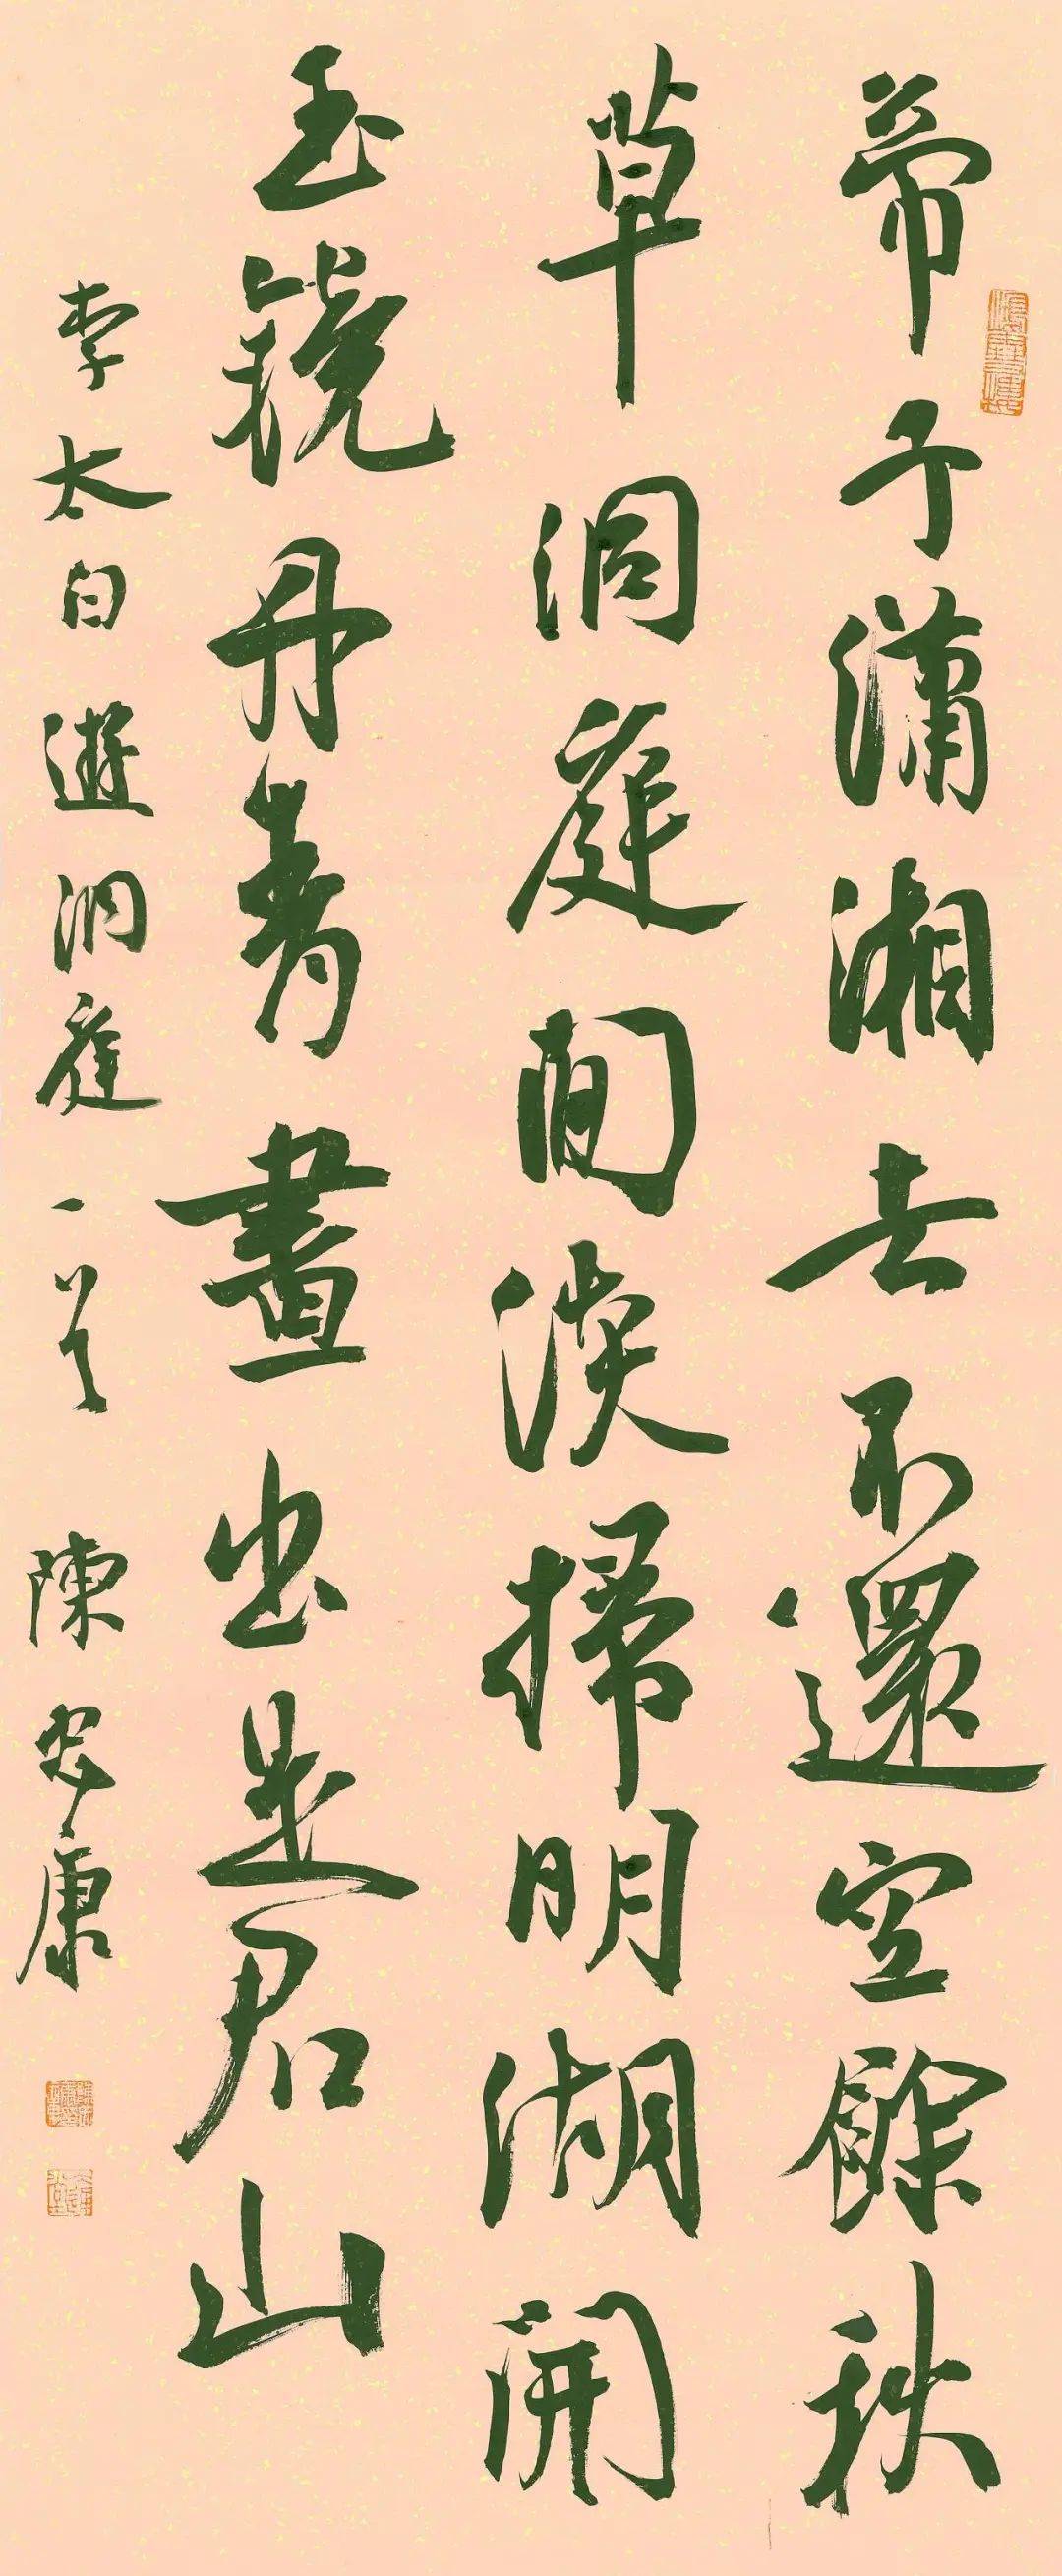 帝子瀟湘去不還空餘秋
草洞庭間淡掃明湖開
玉鏡丹青畫出是君山
李太白遊洞庭一首 陳忠康